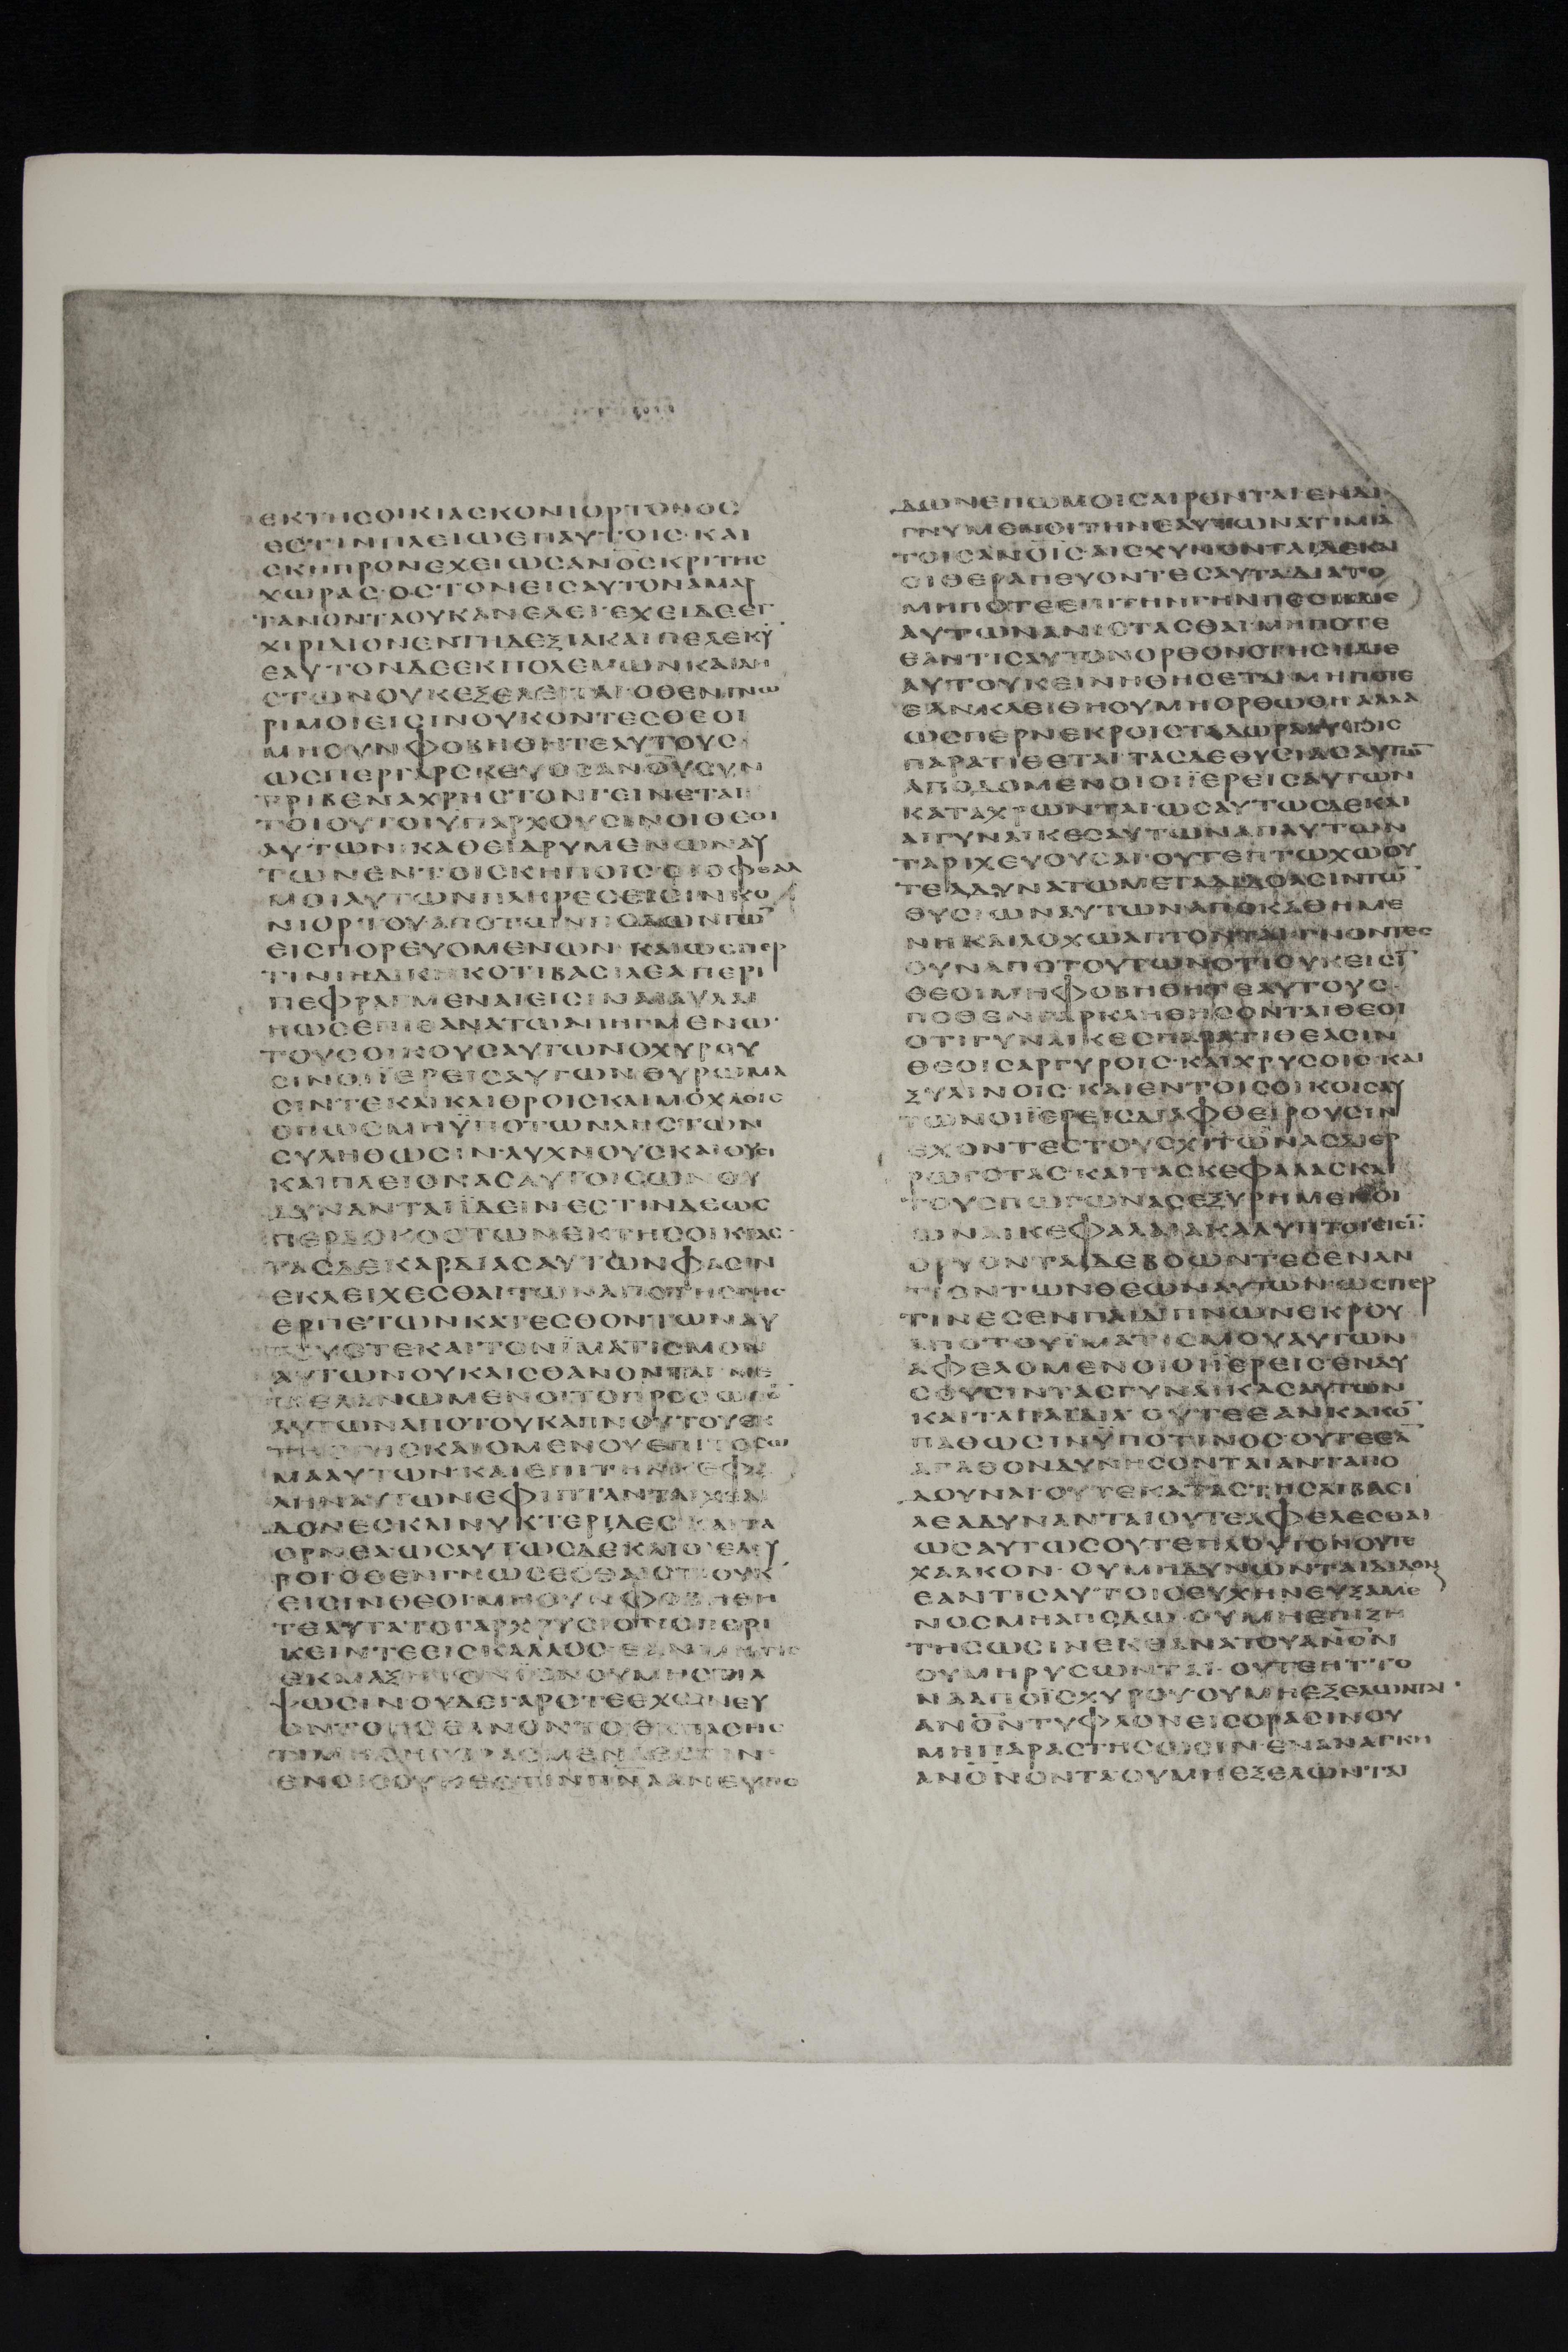 ΕΚΤΗΣΟΙΚΙΑΣΚΟΝΙΟΡΤΟΝΟΣ
ΕΣΤΙΝΠΛΕΙΩΕΠΑΥΤΟΙΣ·ΚΑΙ
ΣΚΗΠΡΟΝΕΧΕΙΩΣΑΝΟΣΚΡΙΤΗΣ
ΧΩΡΑΣ·ΟΣΤΟΝΕΙΣΑΥΤΟΝΑΜΑΡ
ΤΑΝΟΝΤΑΟΥΚΑΝΕΛΕΙ·ΕΧΕΙΔΕΕΓ
ΧΙΡΙΔΙΟΝΕΝΤΗΔΕΞΙΑΚΑΙΠΕΛΕΚΥ
ΕΑΥΤΟΝΔΕΕΚΠΟΛΕΜΩΝΚΑΙΛΗ
ΣΤΩΝΟΥΚΕΞΕΛΕΙΤΑΙ·ΟΘΕΝΓΝΩ
ΡΙΜΟΙΕΙΣΙΝΟΥΚΟΝΤΕΣΘΕΟΙ
ΜΗΟΥΝΦΟΒΗΘΗΤΕΑΥΤΟΥΣ·
ΩΣΠΕΡΓΑΡΣΚΕΥΟΣΑΝΟΥΣΥΝ
ΤΡΙΒΕΝΑΧΡΗΣΤΟΝΓΕΙΝΕΤΑΙ
ΤΟΙΟΥΤΟΙΥΠΑΡΧΟΥΣΙΝΟΙΘΕΟΙ
ΑΥΤΩΝ·ΚΑΘΕΙΔΡΥΜΕΝΩΝΑΥ
ΤΩΝΕΝΤΟΙΣΚΗΠΟΙΣ·ΟΙΟΦΘΑΛ
ΜΟΙΑΥΤΩΝΠΛΗΡΕΣΕΙΣΙΝΚΟ
ΝΙΟΡΤΟΥΑΠΟΤΩΝΠΟΔΩΝΤΩ
ΕΙΣΠΟΡΕΥΟΜΕΝΩΝ·ΚΑΙΩΣΠΕΡ
ΤΙΝΙΗΔΙΚΗΚΟΤΙΒΑΣΙΛΕΑΠΕΡΙ
ΠΕΦΡΑΓΜΕΝΑΙΕΙΣΙΝΑΙΑΥΛΑΙ
ΗΩΣΕΠΙΘΑΝΑΤΩΑΠΗΓΜΕΝΩ·
ΤΟΥΣΟΙΚΟΥΣΑΥΤΩΝΟΧΥΡΟΥ
ΣΙΝΟΙΪΕΡΕΙΣΑΥΤΩΝΘΥΡΩΜΑ
ΣΙΝΤΕΚΑΙΚΛΙΘΡΟΙΣΚΑΙΜΟΧΛΟΙΣ
ΟΠΩΣΜΗΫΠΟΤΩΝΛΗΣΤΩΝ
ΣΥΛΗΘΩΣΙΝ·ΛΥΧΝΟΥΣΚΑΙΟΥΣΙ
ΚΑΙΠΛΕΙΟΝΑΣΑΥΤΟΙΣΩΝΟΥ
ΔΥΝΑΝΤΑΙΪΔΕΙΝ·ΕΣΤΙΝΔΕΩΣ
ΠΕΡΔΟΚΟΣΤΩΝΕΚΤΗΣΟΙΚΙΑΣ·
ΤΑΣΔΕΚΑΡΔΙΑΣΑΥΤΩΝΦΑΣΙΝ
ΕΚΛΕΙΧΕΣΘΑΙΤΩΝΑΠΟΤΗΣΓΗΣ
ΕΡΠΕΤΩΝΚΑΤΕΣΘΟΝΤΩΝΑΥ
ΤΟΥΣΤΕΚΑΙΤΟΝΪΜΑΤΙΣΜΟΝ
ΑΥΤΩΝΟΥΚΑΙΣΘΑΝΟΝΤΑΙ·ΜΕ
ΜΕΛΑΝΩΜΕΝΟΙΤΟΠΡΟΣΩΠΟ
ΑΥΤΩΝΑΠΟΤΟΥΚΑΠΝΟΥΤΟΥΕΚ
ΤΗΣΓΗΣΚΑΙΟΜΕΝΟΥΕΠΙΤΟΣΩ
ΜΑΑΥΤΩΝ·ΚΑΙΕΠΙΤΗΝΚΕΦΑ
ΛΗΝΑΥΤΩΝΕΦΙΠΤΑΝΤΑΙΧΕΛΙ
ΔΟΝΕΣΚΑΙΝΥΚΤΕΡΙΔΕΣΚΑΙΤΑ
ΟΡΝΕΑ·ΩΣΑΥΤΩΣΔΕΚΑΙΟΙΕΛΟΥ
ΡΟΙ·ΟΘΕΝΓΝΩΣΕΣΘΑΙΟΤΙΟΥΚ
ΕΙΣΙΝΘΕΟΙ·ΜΗΟΥΝΦΟΒΗΘΗ
ΤΕΑΥΤΑ·ΤΟΓΑΡΧΡΥΣΙΟΝΟΠΕΡΙ
ΚΕΙΝΤΕΕΙΣΚΑΛΛΟΣ·ΕΑΝΜΗΤΙΣ
ΕΚΜΑΞΗΤΟΝΪΟΝΟΥΜΗΣΤΙΛ
ΨΩΣΙΝ·ΟΥΔΕΓΑΡΟΤΕΕΧΩΝΕΥ
ΟΝΤΟΗΣΘΑΝΟΝΤΟ·ΕΚΠΑΣΗΣ
ΤΙΜΗΣΗΓΟΡΑΣΜΕΝΑΕΣΤΙΝ
ΕΝΟΙΣΟΥΚΕΣΤΙΝΠΝΑΑΝΕΥΠΟ
ΔΩΝΕΠΩΜΟΙΣΑΙΡΟΝΤΑΙΕΝΔΙ
ΓΝΥΜΕΝΟΙΤΗΝΕΑΥΤΩΝΑΤΙΜΙΑ
ΤΟΙΣΑΝΟΙΣ·ΑΙΣΧΥΝΟΝΤΑΙΔΕΚΑΙ
ΟΙΘΕΡΑΠΕΥΟΝΤΕΣΑΥΤΑΔΙΑΤΟ
ΜΗΠΟΤΕΕΠΙΤΗΝΓΗΝΠΕΣΗΔΙΕ
ΑΥΤΩΝΑΝΙΣΤΑΣΘΑΙ·ΜΗΠΟΤΕ
ΕΑΝΤΙΣΑΥΤΟΝΟΡΘΟΝΣΤΗΣΗΔΙΕ
ΑΥΤΟΥΚΕΙΝΗΘΗΣΕΤΑΙΜΗΠΟΤΕ
ΕΑΝΚΛΕΙΘΗΟΥΜΗΟΡΘΩΘΗΑΛΛΑ
ΩΣΠΕΡΝΕΚΡΟΙΣΤΑΔΩΡΑΑΥΤΟΙΣ
ΠΑΡΑΤΙΘΕΤΑΙ·ΤΑΣΔΕΘΥΣΙΑΣΑΥΤΩ
ΑΠΟΔΟΜΕΝΟΙΟΙΪΕΡΕΙΣΑΥΤΩΝ
ΚΑΤΑΧΡΩΝΤΑΙ·ΩΣΑΥΤΩΣΔΕΚΑΙ
ΑΙΓΥΝΑΙΚΕΣΑΥΤΩΝΑΠΑΥΤΩΝ
ΤΑΡΙΧΕΥΟΥΣΑΙ·ΟΥΤΕΠΤΩΧΩΟΥ
ΤΕΑΔΥΝΑΤΩΜΕΤΑΔΙΔΟΑΣΙΝΤΩ
ΘΥΣΙΩΝΑΥΤΩΝΑΠΟΚΑΘΗΜΕ
ΝΗΚΑΙΛΟΧΩΑΠΤΟΝΤΑΙ·ΓΝΟΝΤΕΣ
ΟΥΝΑΠΟΤΟΥΤΩΝΟΤΙΟΥΚΕΙΣΙ
ΘΕΟΙΜΗΦΟΒΗΘΗΤΕΑΥΤΟΥΣ·
ΠΟΘΕΝΓΑΡΚΛΗΘΗΣΟΝΤΑΙΘΕΟΙ
ΟΤΙΓΥΝΑΙΚΕΣΠΑΡΑΤΙΘΕΑΣΙΝ
ΘΕΟΙΣΑΡΓΥΡΟΙΣ·ΚΑΙΧΡΥΣΟΙΣ·ΚΑΙ
ΞΥΛΙΝΟΙΣ·ΚΑΙΕΝΤΟΙΣΟΙΚΟΙΣΑΥ
ΤΩΝΟΙΪΕΡΕΙΣΔΙΑΦΘΕΙΡΟΥΣΙΝ
ΕΧΟΝΤΕΣΤΟΥΣΧΙΤΩΝΑΣΔΙΕΡ
ΡΩΓΟΤΑΣ·ΚΑΙΤΑΣΚΕΦΑΛΑΣΚΑΙ
ΤΟΥΣΠΩΓΩΝΑΣΕΞΥΡΗΜΕΝΟΙ
ΩΝΑΙΚΕΦΑΛΑΙΑΚΑΛΥΠΤΟΙΕΙΣΙ·
ΩΡΥΟΝΤΑΙΔΕΒΟΩΝΤΕΣΕΝΑΝ
ΤΙΟΝΤΩΝΘΕΩΝΑΥΤΩΝ·ΩΣΠΕΡ
ΤΙΝΕΣΕΝΠΕΡΙΔΙΠΝΩΝΕΚΡΟΥ
ΑΠΟΤΟΥΪΜΑΤΙΣΜΟΥΑΥΤΩΝ
ΑΦΕΛΟΜΕΝΟΙΟΙΪΕΡΕΙΣΕΝΔΥ
ΣΟΥΣΙΝΤΑΣΓΥΝΑΙΚΑΣΑΥΤΩΝ
ΚΑΙΤΑΠΑΙΔΙΑ·ΟΥΤΕΕΑΝΚΑΚΟ
ΠΑΘΩΣΙΝΫΠΟΤΙΝΟΣ·ΟΥΤΕΕΑ
ΑΓΑΘΟΝΔΥΝΗΣΟΝΤΑΙΑΝΤΑΠΟ
ΔΟΥΝΑΙ·ΟΥΤΕΚΑΤΑΣΤΗΣΑΙΒΑΣΙ
ΛΕΑΔΥΝΑΝΤΑΙΟΥΤΕΑΦΕΛΕΣΘΑΙ
ΩΣΑΥΤΩΣΟΥΤΕΠΛΟΥΤΟΝΟΥΤΕ
ΧΑΛΚΟΝ·ΟΥΜΗΔΥΝΩΝΤΑΙΔΙΔΟΝ
ΕΑΝΤΙΣΑΥΤΟΙΣΕΥΧΗΝΕΥΞΑΜΕ
ΝΟΣΜΗΑΠΟΔΩ·ΟΥΜΗΕΠΙΖΗ
ΤΗΣΩΣΙΝΕΚΘΑΝΑΤΟΥΑΝΟΝ
ΟΥΜΗΡΥΣΩΝΤΑΙ·ΟΥΤΕΗΤΤΟ
ΝΑΑΠΟΪΣΧΥΡΟΥΟΥΜΗΕΞΕΛΩΝΤΑΙ·
ΑΝΟΝΤΥΦΛΟΝΕΙΣΟΡΑΣΙΝΟΥ
ΜΗΠΑΡΑΣΤΗΣΩΣΙΝ·ΕΝΑΝΑΓΚΗ
ΑΝΟΝΟΝΤΑΟΥΜΗΕΞΕΛΩΝΤΑΙ